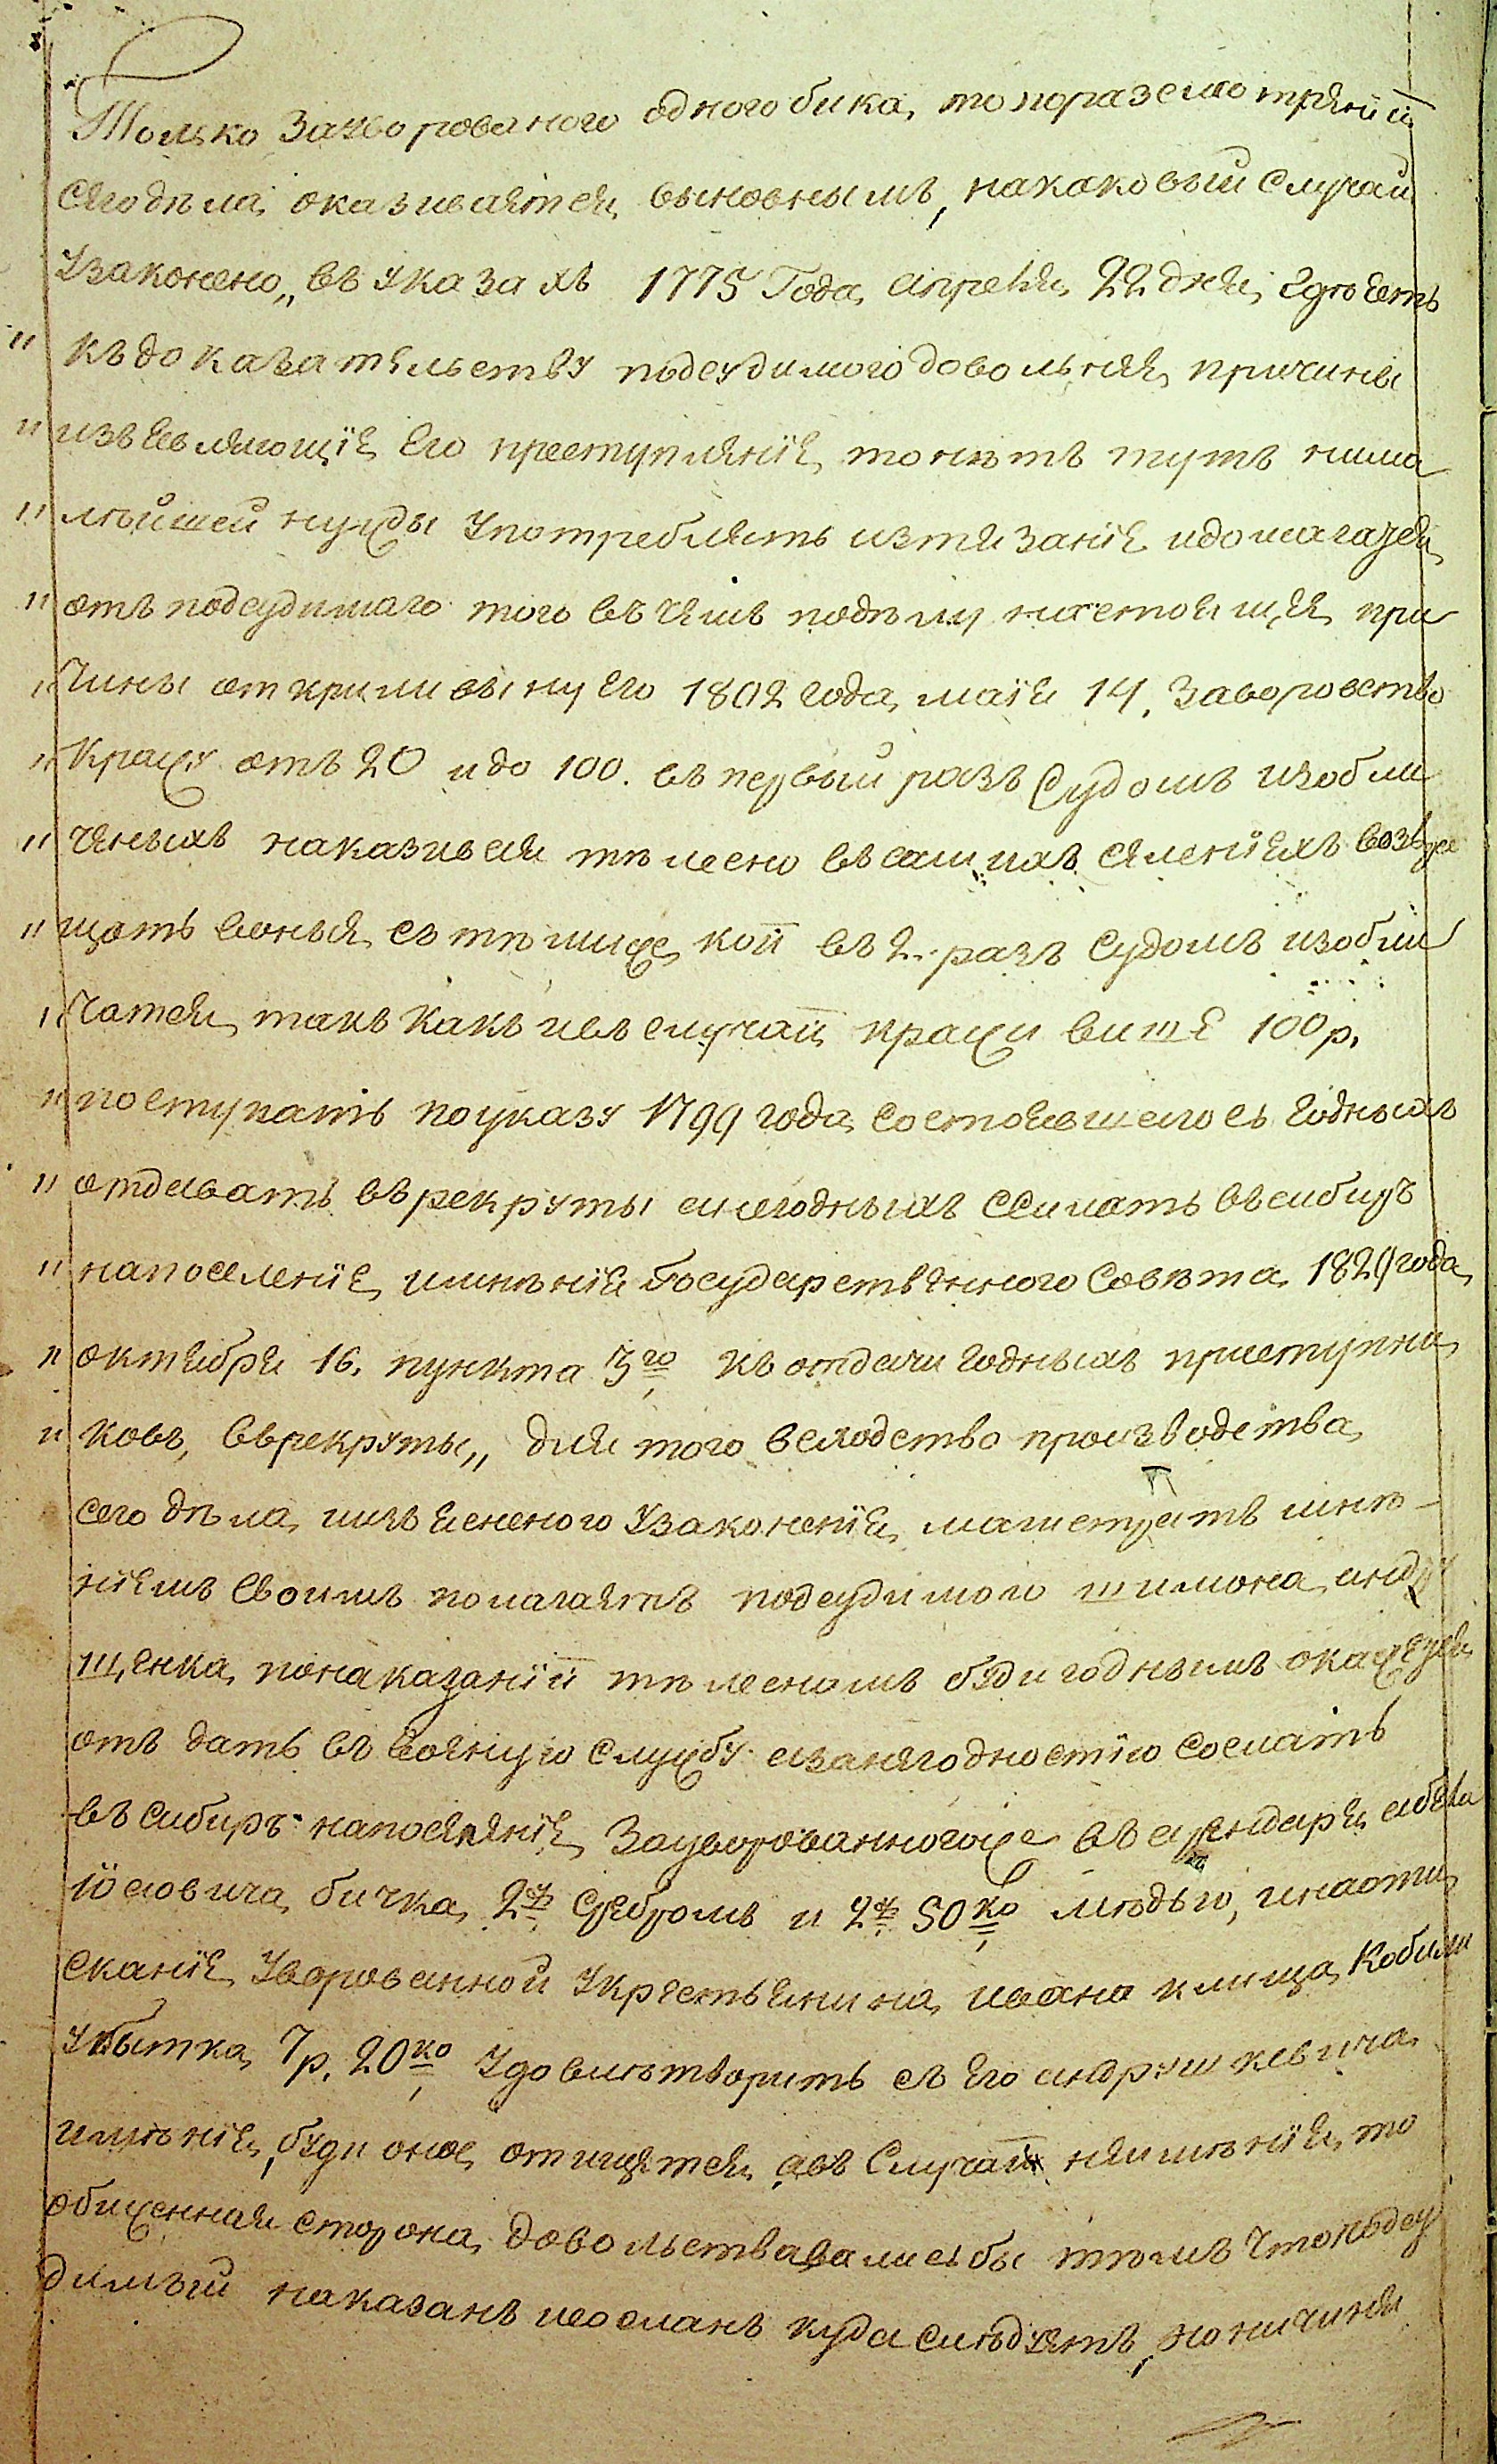 Только зауворованого одного бика, то поразсмотрѣнiи
сего дѣла, оказивается выновнымъ, накаковый случай
Узаконено,, въ Указахъ 1775 Года, апреля 22 дня, гдѣ есть
" къ доказательству подсудимого доволныя причины
" изъявляющiе его преступленiе, то нѣтъ тутъ нима
" лѣйшей нужды употреблять изтязанiе, и домагатся
" отъ подсудимаго того въ чемъ подѣлу настоящея при
" чины открили выну его 1802 года, маiя 14, За воровство
" Кражу отъ 20 и до 100. въ первый разъ Судомъ изобли
" ченыхъ наказивая тѣлесно въ самихъ селенiяхъ возвра
" щать воныя, съ тѣмиже, кои въ 2. разъ судомъ изобли
" чатся, такъ какъ и въ случаи кражи више 100 р.
" поступать поуказу 1799 года состоявшегось годныхъ
" отдавать въ рекруты а негодныхъ ссилать въ сибирь
" на поселенiе, имнѣнiя Государственного Совѣта, 1829 года,
" октября 16. пункта 3го къ отдачи годныхъ преступни
" ковъ, въ рекруты,, Для того вслѣдство производства,
сего дѣла, и изъясненого Узаконенiя, магистратъ мнѣ-
нiемъ своимъ полагаетъ подсудимого шимона, андру
щенка, понаказанiи тѣлесномъ буди годнымъ окажется
отъ дать въ военую службу а занегодностiю сослать
въ сибирь на поселенiе, За уворованногоже въ арендаря абеля
Iосiовича, бичка, 2р. сребромъ и 2р. 50 ко мѣдью, и на оти
сканiе, Уворованной Укрестьянина, ивана клища, Кобили
Убытка, 7 р. 20 ко Удовлѣтворить съ его андрушкевича
имѣнiя, буди оное, отищется, авъ Случаи неимѣнiя, то
обиженная сторона, довольствовалисьбы тѣмъ что подсу
димый наказанъ исосланъ куда слѣдуетъ, но ничиня